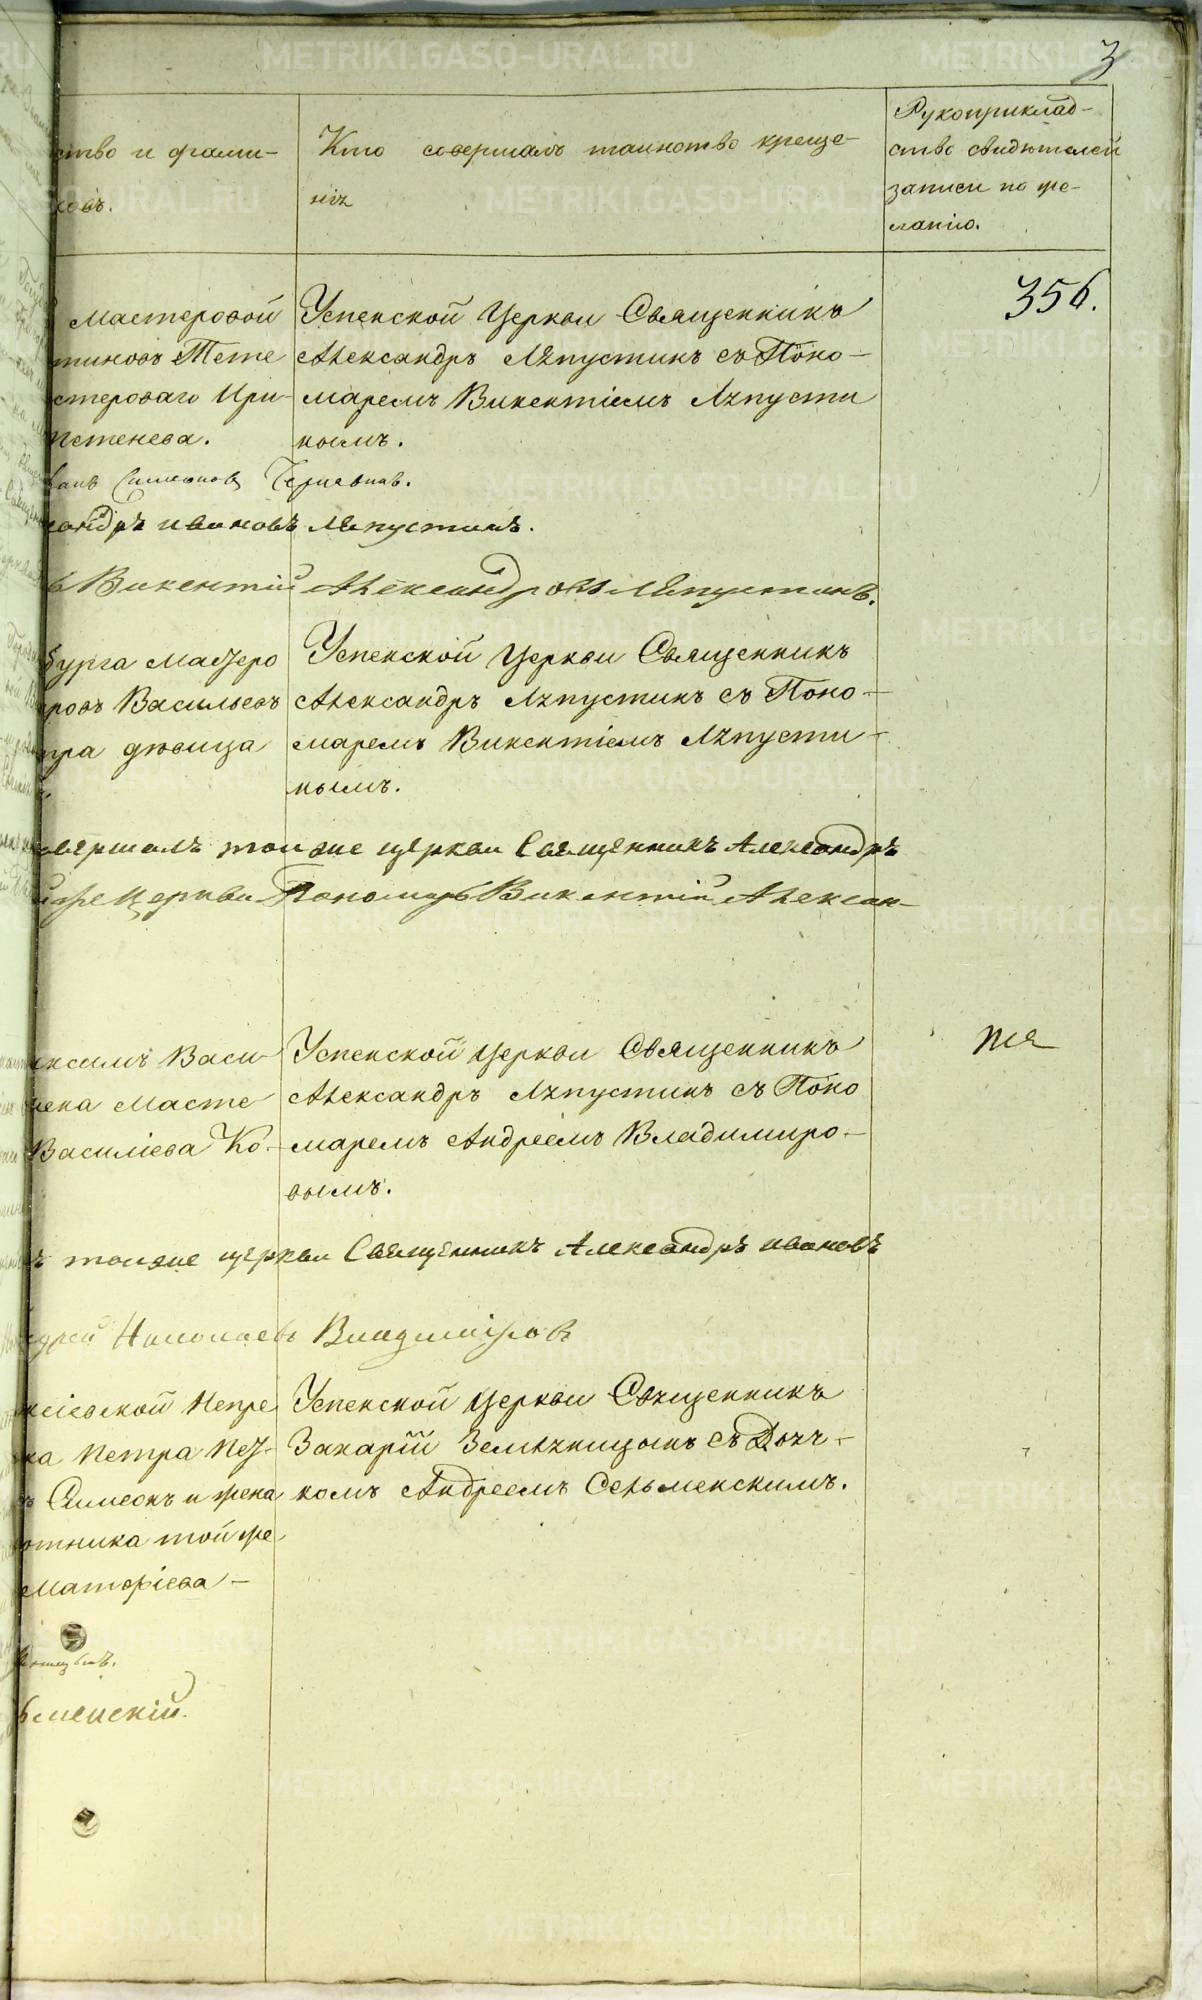 3
ство и фами-
ковъ.
Кто совершалъ таинство креще-
нія
Рукоприклад-
ство свидѣтелей
записи по же-
ланію.
356.
Мастеровой
тиновъ Тете
стероваго Ири-
петенева.
Успенской Церкви Священникъ
Александръ Ляпустинъ съ Поно-
маремъ Викентіемъ Ляпусти
нымъ.
Симеоновъ
сандръ Ивановъ Ляпустинъ.
ъ Викентій Александровъ Ляпустинъ.
бурга Мастеро
ровъ Васильевъ
тра дѣвица
Успенской Церкви Священникъ
Александръ Ляпустинъ съ Поно-
маремъ Викентіемъ Ляпусти-
нымъ.
овершалъ тои же церкви Священникъ Александръ
же Церкви Пономарь Викентій Алексан-
ксимъ Васи-
жена Масте
Василіева Ко-
Успенской Церкви Священникъ
Александръ Ляпустинъ съ Поно
маремъ Андреемъ Владимиро-
вымъ.
ъ тоиже церкви Священникъ Александръ Ивановъ
дрей Николаевъ Владиміровъ
ксіевской Непре
ка Петра
ъ Симеонъ и жена
отника той же
Матфіева-
Успенской Церкви Священникъ
Захарій Земляницынъ съ Дьяч-
комъ Андреемъ Сельменскимъ.
ьменскій.
METRIKI.GASO-URAL.RU